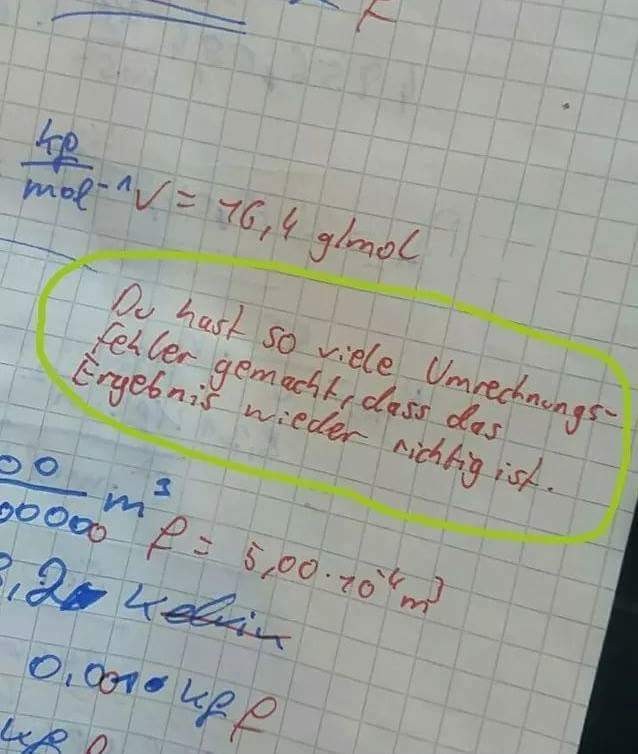 f
kg
mol⁻¹ √ = 16,4 g/mol
Du hast so viele Umrechnungs-
fehler gemacht, dass das
Ergebnis wieder richtig ist.
00
00000 m³ f = 5,00·10⁻⁴ m³
,2 Kelvin
0,001 kg f
kg f